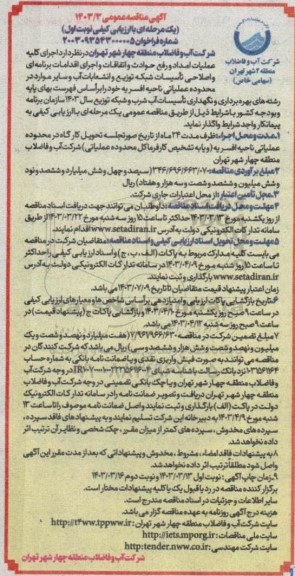 آگهی مناقصه عمومی ۱۴۰۳/۳
(یک مرحله ای با ارزیابی کیفی نوبت اول)
شماره فراخوان ۲۰۰۳۰۹۳۵۴۳۰۰۰۰۰۵
شرکت آب و فاضلاب
منطقه ۴ شهر تهران
(سهامی خاص)
شرکت آب و فاضلاب منطقه چهار شهر تهران در نظر دارد اجرای کلیه
عملیات امداد و رفع حوادث و اتفاقات و اجرای اقدامات برنامه ای
و اصلاحی تأسیسات شبکه توزیع و انشعابات آب و سایر موارد در
محدوده عملیاتی ناحیه افسریه خود را بر اساس فهرست بهای پایه
رشته های بهره برداری و نگهداری تأسیسات آب شرب و شبکه توزیع سال ۱۴۰۳ سازمان برنامه
و بودجه کشور با شرایط ذیل از طریق مناقصه عمومی یک مرحله ای با ارزیابی کیفی به
پیمانکار واجد شرایط واگذار نماید.
۱.مدت و محل اجرا: ظرف مدت ۲۴ ماه از تاریخ صورتجلسه تحویل کار گاه در محدوده
عملیاتی ناحیه افسریه (و یا به تشخیص کارفرما کل محدوده عملیاتی) شرکت آب و فاضلاب
منطقه چهار شهر تهران
۲.مبلغ برآوردی مناقصه: ۳۴۶/۶۹۶/۶۶۳/۰۷۰ (سیصد و چهل و شش میلیارد و ششصد و نود
و شش میلیون و ششصد و شصت و سه هزار و هفتاد) ریال
۳.محل تأمین اعتبار: از محل اعتبارات جاری شرکت.
۴.مهلت و محل دریافت اسناد مناقصه: داوطلبان می توانند جهت دریافت اسناد مناقصه
از روز یکشنبه مورخ ۱۴۰۳/۳/۱۳ حداکثر تا ساعت ۱۵ روز سه شنبه مورخ ۱۴۰۳/۰۳/۲۲ از طریق
سامانه تدارکات الکترونیکی دولت به آدرس www.setadiran.ir اقدام نمایند.
۵.مهلت و محل تحویل اسناد ارزیابی کیفی و اسناد مناقصه: متقاضیان شرکت در مناقصه
می بایست کلیه مدارک مربوط به پاکات (الف، ب، ج) و اسناد ارزیابی کیفی را حداکثر
تا ساعت ۱۵ روز شنبه مورخ ۱۴۰۳/۰۴/۰۹ در سامانه تدارکات الکترونیکی دولت به آدرس
www.setadiran.ir بارگذاری و ثبت نمایند.
زمان اعتبار پیشنهاد قیمت متقاضیان تا تاریخ ۱۴۰۳/۰۷/۰۹ می باشد.
۶.تاریخ بازگشایی پاکات ارزیابی و امتیازدهی بر اساس شاخص ها و معیارهای ارزیابی کیفی
در ساعت ۹ صبح روز یکشنبه مورخ ۱۴۰۳/۰۴/۱۰ و بازگشایی پاکات ج (پیشنهاد قیمت) در
ساعت ۹ صبح روز سه شنبه ۱۴۰۳/۰۴/۱۲ می باشد.
۷.مبلغ تضمین شرکت در مناقصه ۷/۹۶۱/۹۶۶/۶۳۰ (هفت میلیارد و نهصد و شصت و یک
میلیون و نهصد و شصت و شش هزار و ششصد و سی) ریال می باشد که شرکت کنندگان در
مناقصه می توانند به صورت فیش واریزی نقدی و یا ضمانت نامه بانکی به شماره حساب
و فاضلاب منطقه چهار شهر تهران و یا چک بانکی تضمینی در وجه شرکت آب و فاضلاب
منطقه چهار شهر تهران دریافت و تصویر ضمانت نامه را در سامانه تدارکات الکترونیک
دولت در پاکت (الف) بارگذاری و ثبت نمایند و اصل ضمانت نامه موصوف را تا ساعت ۱۳
شنبه مورخ ۱۴۰۳/۴/۹ به دبیرخانه این شرکت تسلیم نمایند و به پیشنهادهای فاقد سپرده،
سپرده های مخدوش، سپرده های کمتر از میزان مقرر، چک شخصی و نظایر آن ترتیب اثر
داده نخواهد شد.
۸.به پیشنهادات فاقد امضاء، مشروط، مخدوش و پیشنهاداتی که بعد از مدت مقرر این آگهی
واصل شود مطلقاً ترتیب اثر داده نخواهد شد.
۹.زمان چاپ آگهی: نوبت اول ۱۴۰۳/۰۳/۱۳ و نوبت دوم ۱۴۰۳/۰۳/۱۶
برگزار کننده مناقصه در رد یا قبول یک یا کلیه پیشنهادات مختار است.
سایر اطلاعات و جزئیات در اسناد مناقصه مندرج است.
هزینه درج آگهی روزنامه به عهده مناقصه گزار می باشد.
سایت شرکت آب و فاضلاب منطقه چهار شهر تهران: http://t4ww.tppww.ir
سایت ملی مناقصات: http://iets.mporg.ir
سایت شرکت مهندسی: http:tender.nww.co.ir
شرکت آب و فاضلاب منطقه چهار شهر تهران